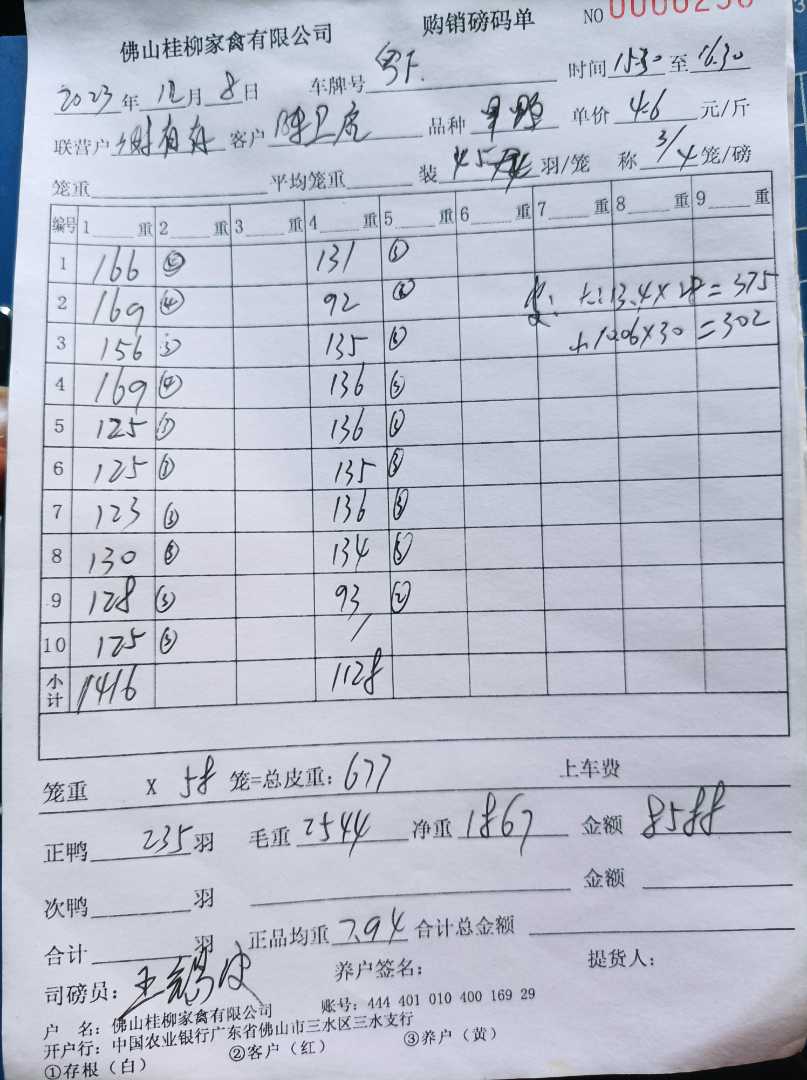 佛山桂柳家禽有限公司 购销磅码单 NO 0000256
2023年12月8日 车牌号 时间15:30至16:30
联营户 客户 品种 单价4.6元/斤
笼重 平均笼重 装45 羽/笼 称3/4笼/磅
编号 1 重 2 重 3 重 4 重 5 重 6 重 7 重 8 重 9 重
1 166 ⑤ 131 ③
2 169 ④ 92 皮: 大:13.4×28=375
3 156 ③ 135 小10.06×30=302
4 169 ④ 136 ③
5 125 ① 136 ③
6 125 ① 135 ③
7 123 ③ 136 ③
8 130 ③ 134 ③
9 128 ③ 93 ②
10 125 ③ /
小计 1416 1128
笼重 x 58 笼=总皮重:677 上车费
正鸭 235 羽 毛重 2544 净重 1867 金额 8588
次鸭 羽 金额
合计 羽 正品均重 7.94 合计总金额
司磅员: 养户签名: 提货人:
户 名:佛山桂柳家禽有限公司 账号:444 401 010 400 169 29
开户行:中国农业银行广东省佛山市三水区三水支行
①存根(白) ②客户(红) ③养户(黄)